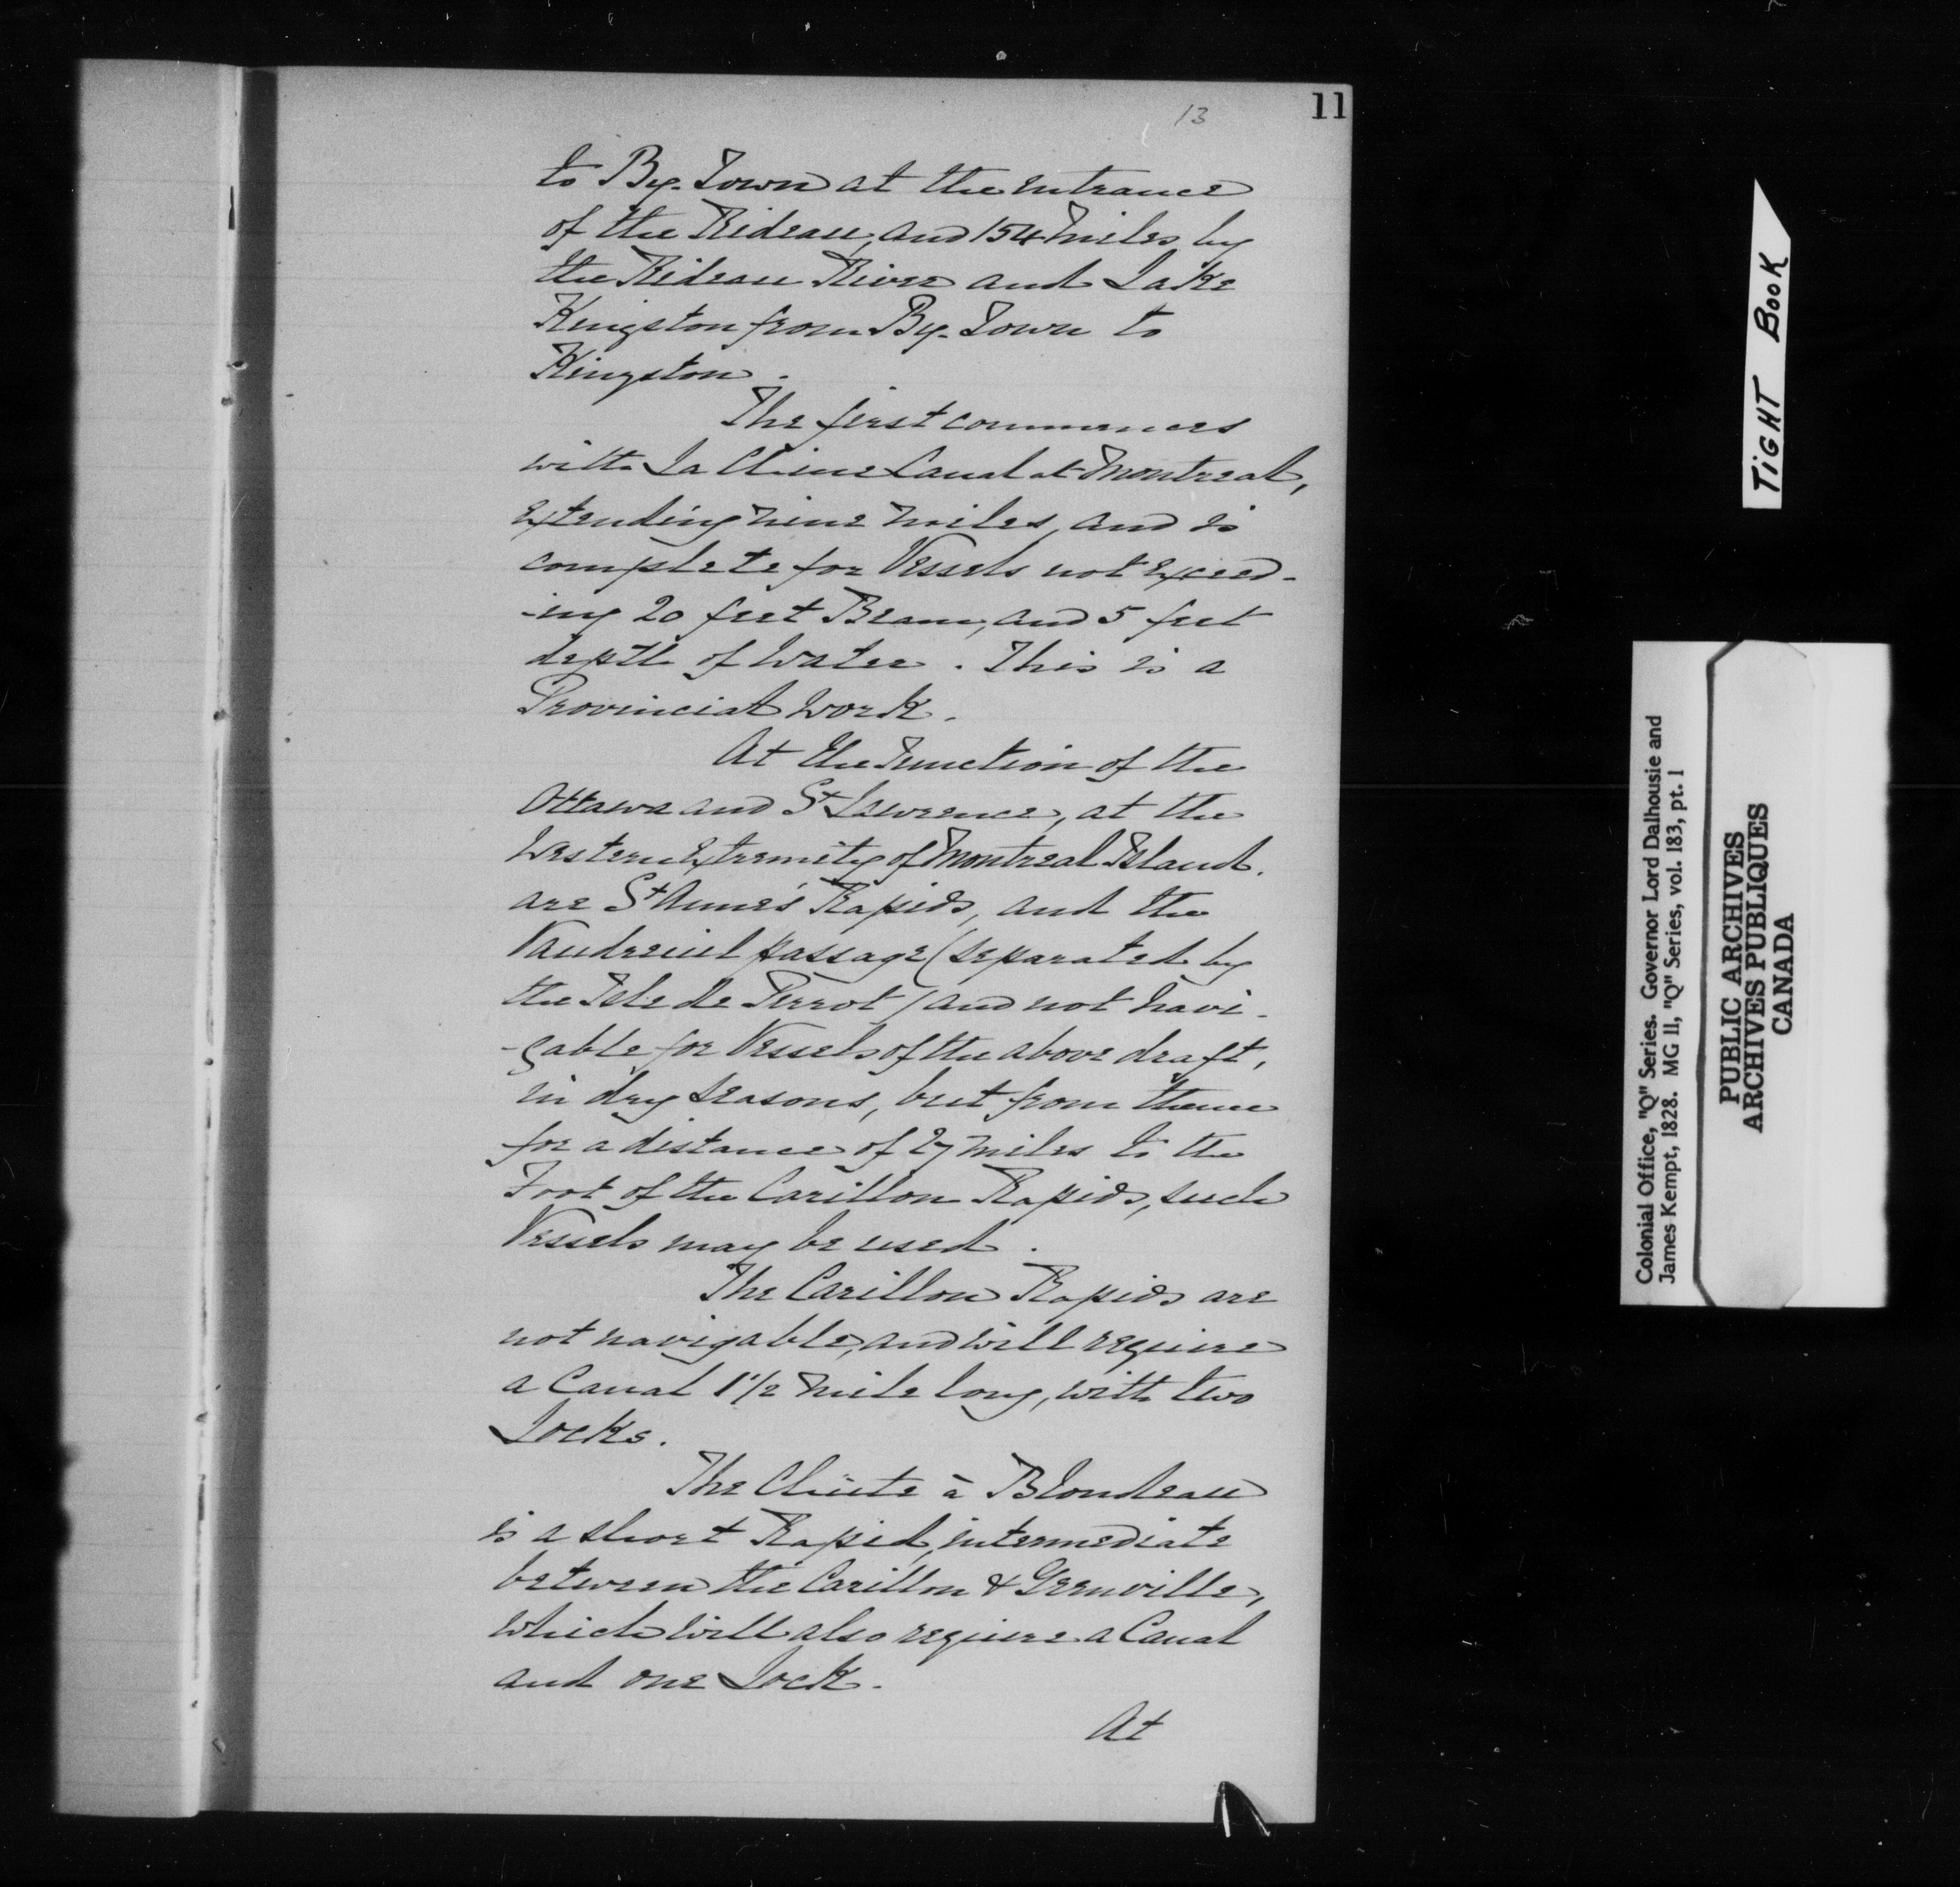 13
11
to By-Town at the entrance
of the Rideau, and 154 miles by
the Rideau River and Lake
Kingston from By-Town to
Kingston.
The first commences
with La Chine Canal at Montreal,
extending nine miles, and is
complete for Vessels not exceed-
-ing 20 feet Beam, and 5 feet
depth of Water. This is a
Provincial Work.
At the Junction of the
Ottawa and St Lawrence, at the
Western extremity of Montreal Island.
are St Anne's Rapids, and the
Vaudreuil passage (separated by
the Isle de Perrot) and not navi-
-gable for Vessels of the above draft,
in dry seasons, but from thence
for a distance of 27 miles to the
Foot of the Carillon Rapids, such
Vessels may be used.
The Carillon Rapids are
not navigable, and will require
a Canal 1 1/2 mile long, with two
Locks.
The Chûte à Blondeau
is a short Rapid, intermediate
between the Carillon & Grenville,
which will also require a Canal
and one Lock.
At
TIGHT BOOK
Colonial Office, "Q" Series. Governor Lord Dalhousie and
James Kempt, 1828. MG 11, "Q" Series, vol. 183, pt. 1
PUBLIC ARCHIVES
ARCHIVES PUBLIQUES
CANADA